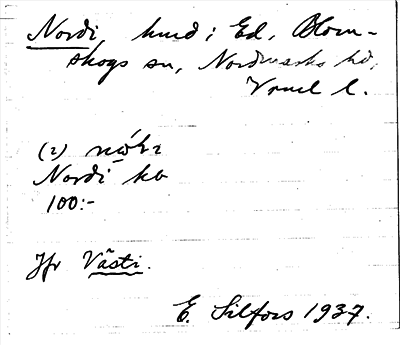 Nordi, hmd i Ed, Blom-
skogs sn, Nordmarks hd,
Vrml l.
(2)
Nordi
100:-
Jfr Västi.
E. Silfors 1937.